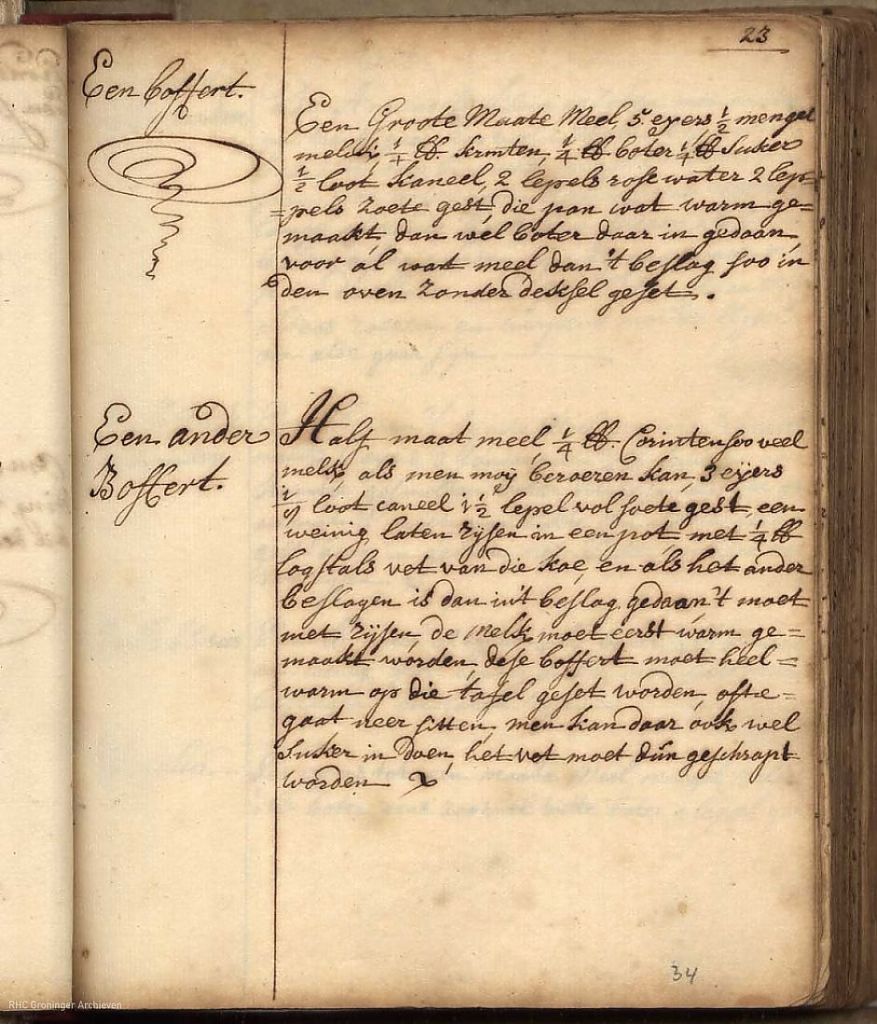 23
Een boffert.
Een Groote Maate Meel 5 eyers 1/2 mengel
melk, 1/4 ℔. krinten, 1/4 ℔ boter 1/4 ℔ Suker
1/2 loot kaneel, 2 lepels rose water 2 lep=
=pels zoete gest, die pan wat warm ge=
maakt dan wel boter daar in gedaan,
voor al wat meel dan 't beslag soo in
den oven zonder deksel geset.
Een ander
Boffert.
Half maat meel, 1/4 ℔. Corinten soo veel
melk, als men moy beroeren kan, 3 eyers
loot caneel 1 1/2 lepel vol soete gest, een
weinig laten rijsen in een pot met 1/4 ℔
logstals vet van die koe, en als het ander
beslagen is dan in't beslag gedaan 't moet
met rijsen, de melk moet eerst warm ge=
maakt worden, dese boffert moet heel=
warm op die tafel geset worden, oft e=
gaat neer sitten, men kan daar ook wel
Suker in doen, het vet moet dun geschrapt
worden
34
RHC Groninger Archieven